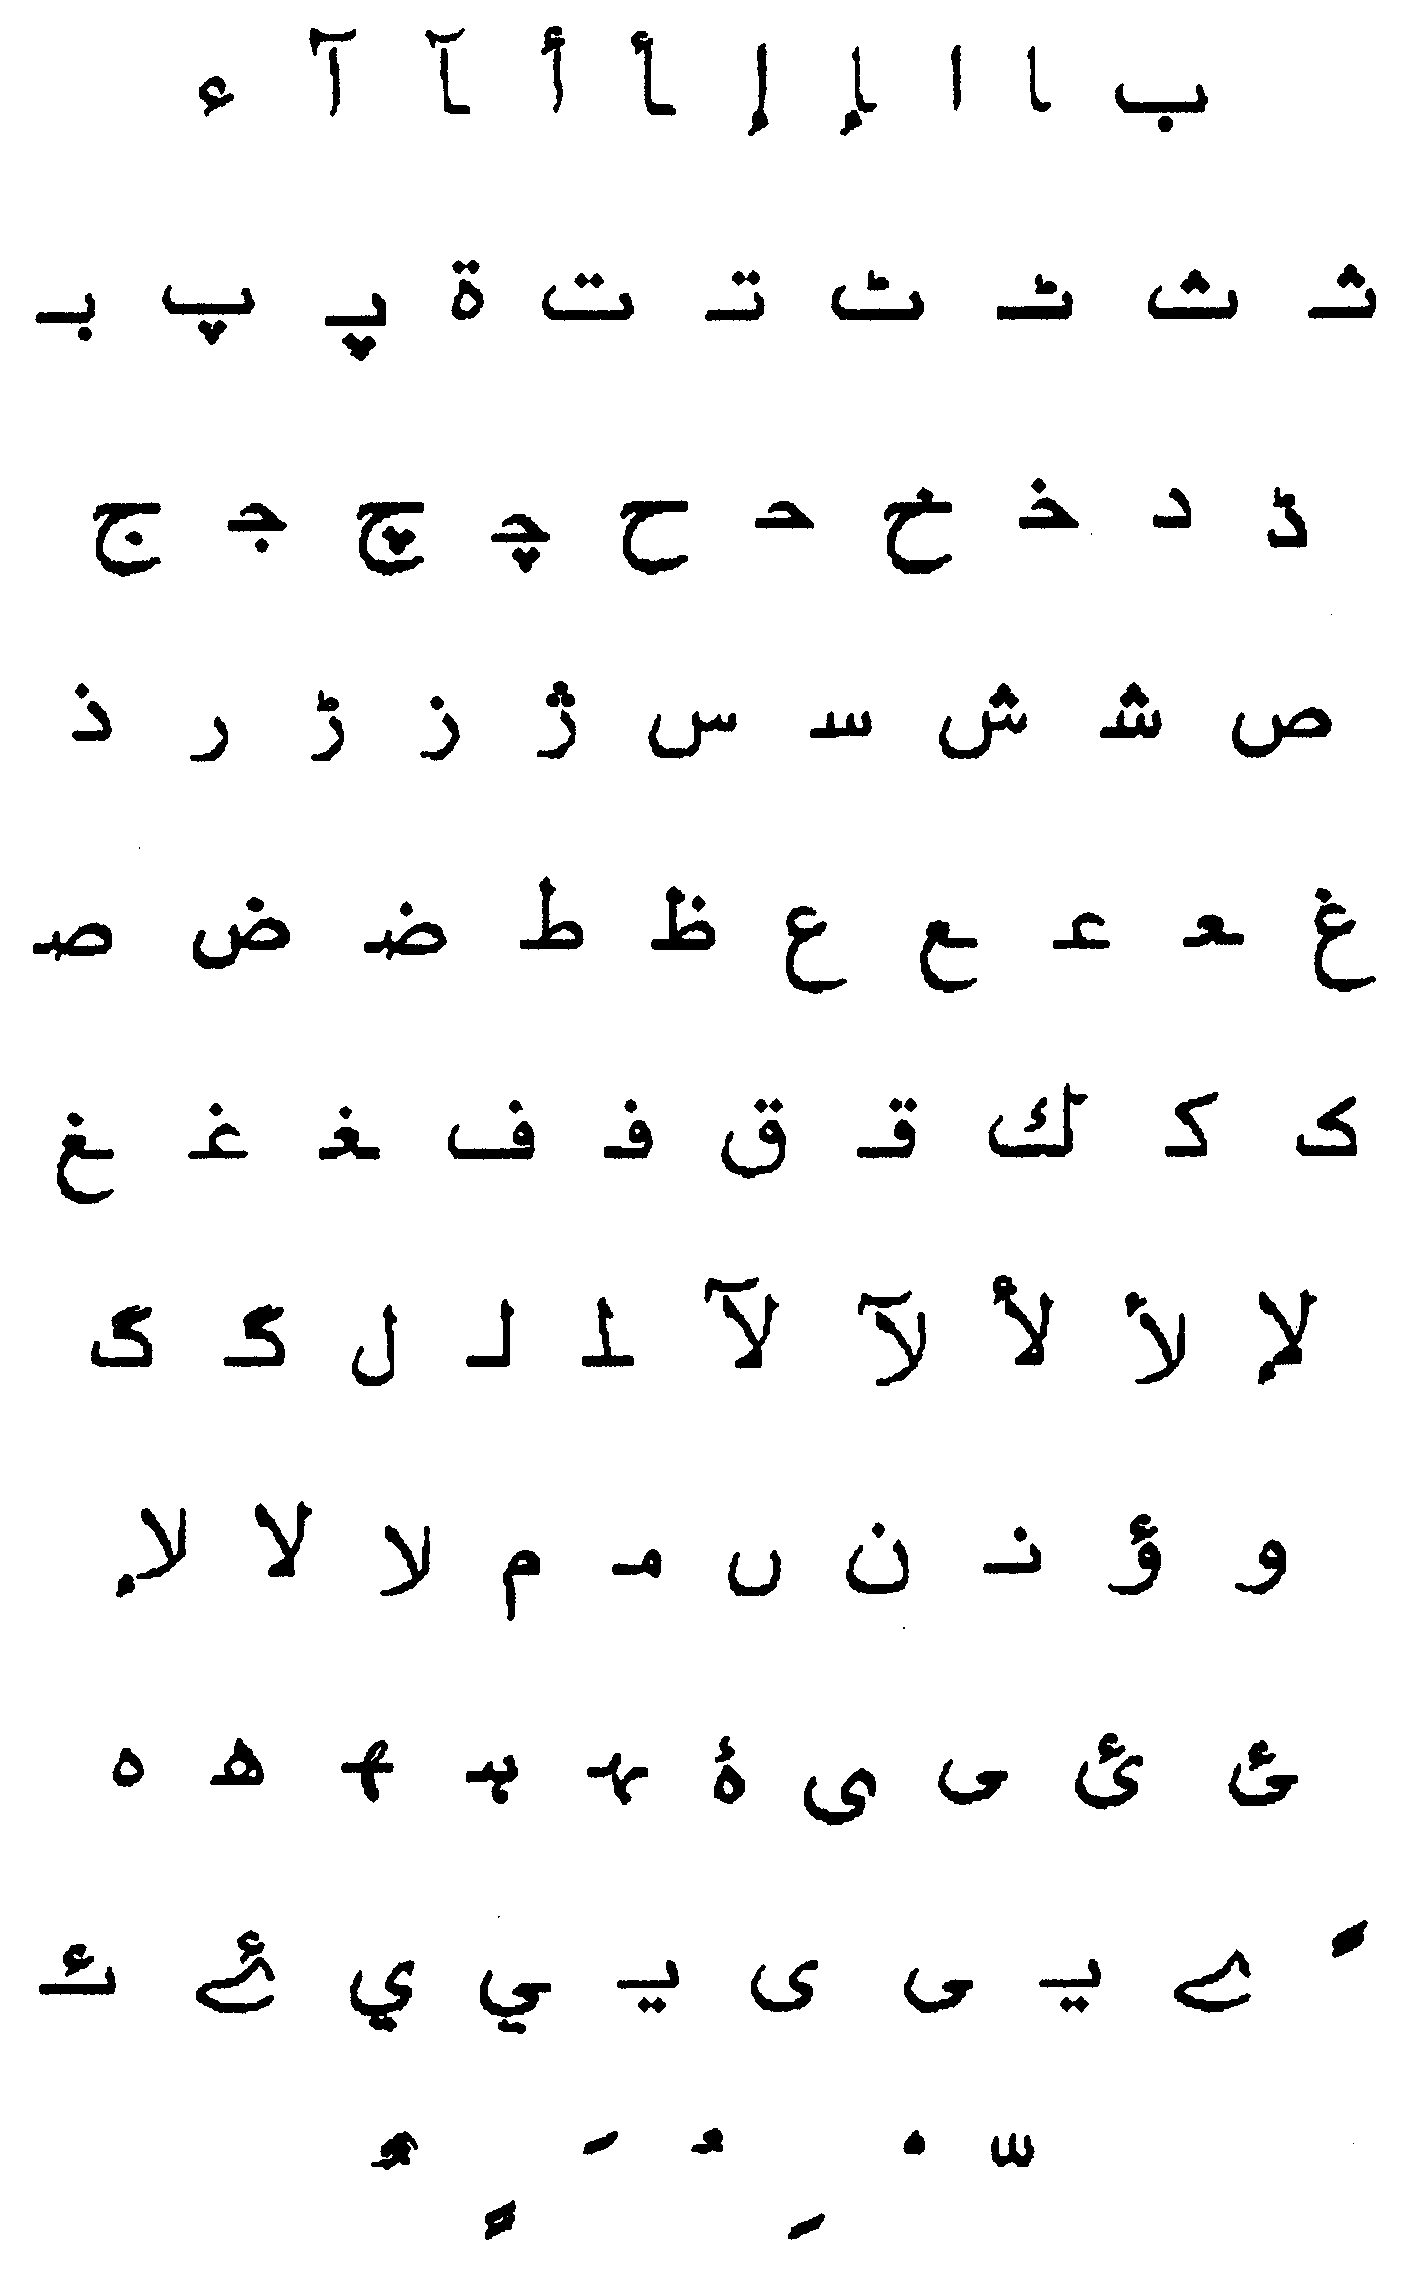 ء آ ﺂ أ ﺄ إ ﺈ ا ﺎ ب
ﺑ پ ﭘ ة ت ﺗ ٹ ﭨ ث ﺛ
ج ﺟ چ ﭼ ح ﺣ خ ﺧ د ڈ
ذ ر ڑ ز ژ س ﺳ ش ﺷ ص
ﺻ ض ﺿ ط ظ ع ﻊ ﻋ ﻌ غ
ﻎ ﻏ ﻐ ف ﻓ ق ﻗ ك ﻛ ک
گ ﮔ ل ﻟ ﻠ ﻵ ﻶ ﻷ ﻸ ﻹ
ﻺ ﻻ ﻼ م ﻣ ں ن ﻧ ؤ و
ه ﻫ ﻬ ﮨ ﮩ ۀ ى ﻰ ئ ﺊ
ﺋ ۓ ي ﻲ ﻳ ی ﯽ ﯾ ے ً
ٌ ٍ َ ُ ِ ْ ّ